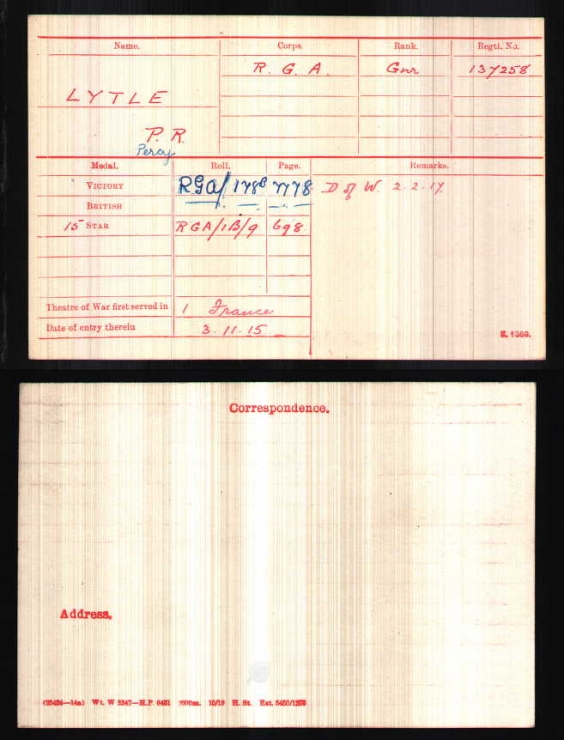 Name. Corps. Rank. Regtl. No.
R. G. A. Gnr 137258
LYTLE
P. R.
Percy
Medal. Roll. Page. Remarks.
VICTORY RGA/178B 7778 D of W. 2.2.17.
BRITISH
15 STAR RGA/1B/9 698
Theatre of War first served in 1 France
Date of entry therein 3.11.15
K. 1380.
Correspondence.
Address.
H. St.